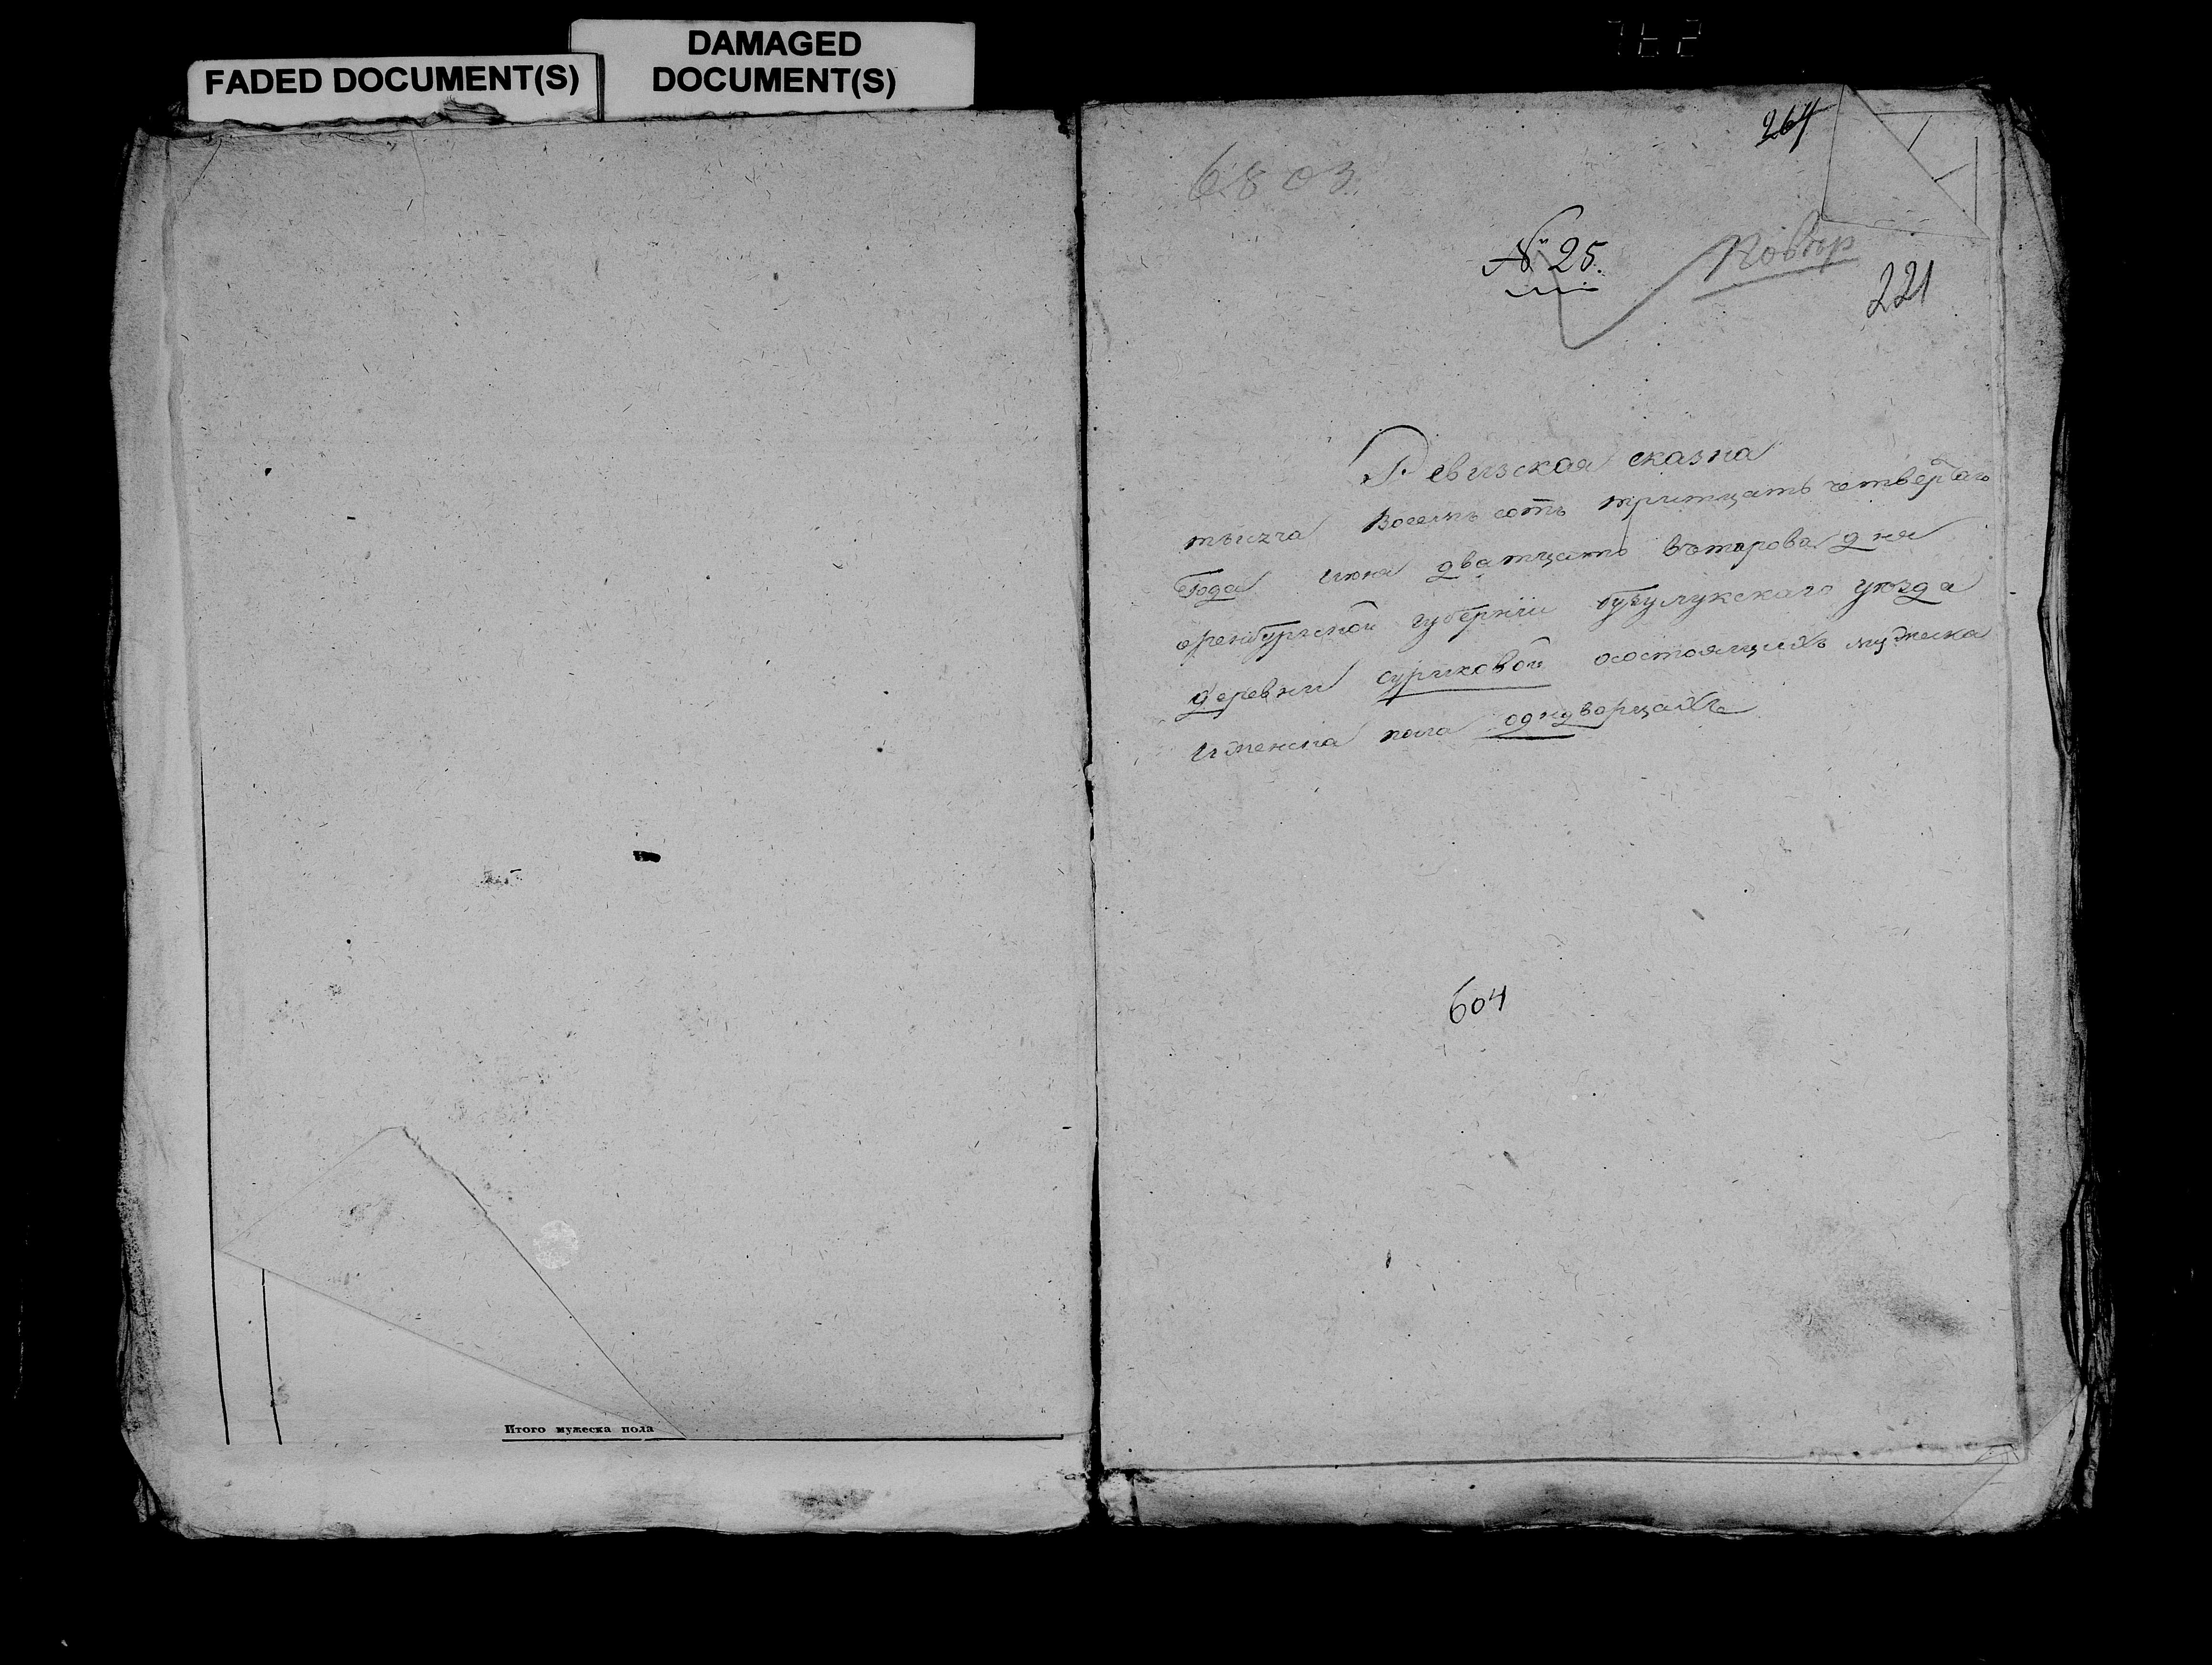 FADED DOCUMENT(S)
DAMAGED
DOCUMENT(S)
Итого мужеска пола
264
6803.
№ 25.
221
Ревизская сказка
тысеча восемь сотъ тритцать четвертаго
года июня дватцать втарова дня
оренбургской губернiи бузулукскаго уезда
деревни суриковой осостоящихъ мужеска
и женска пола однодворцахъ
604